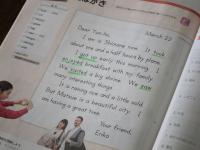 はがき
March 22
Dear Tan-ho,
I am in Shimane now. It took
about one and a half hours by plane.
I got up early this morning. I
enjoyed breakfast with my family.
We visited a big shrine. We saw
many interesting things.
It is raining now and a little cold.
But Matsue is a beautiful city. I
am having a great time.
Your friend,
Eriko